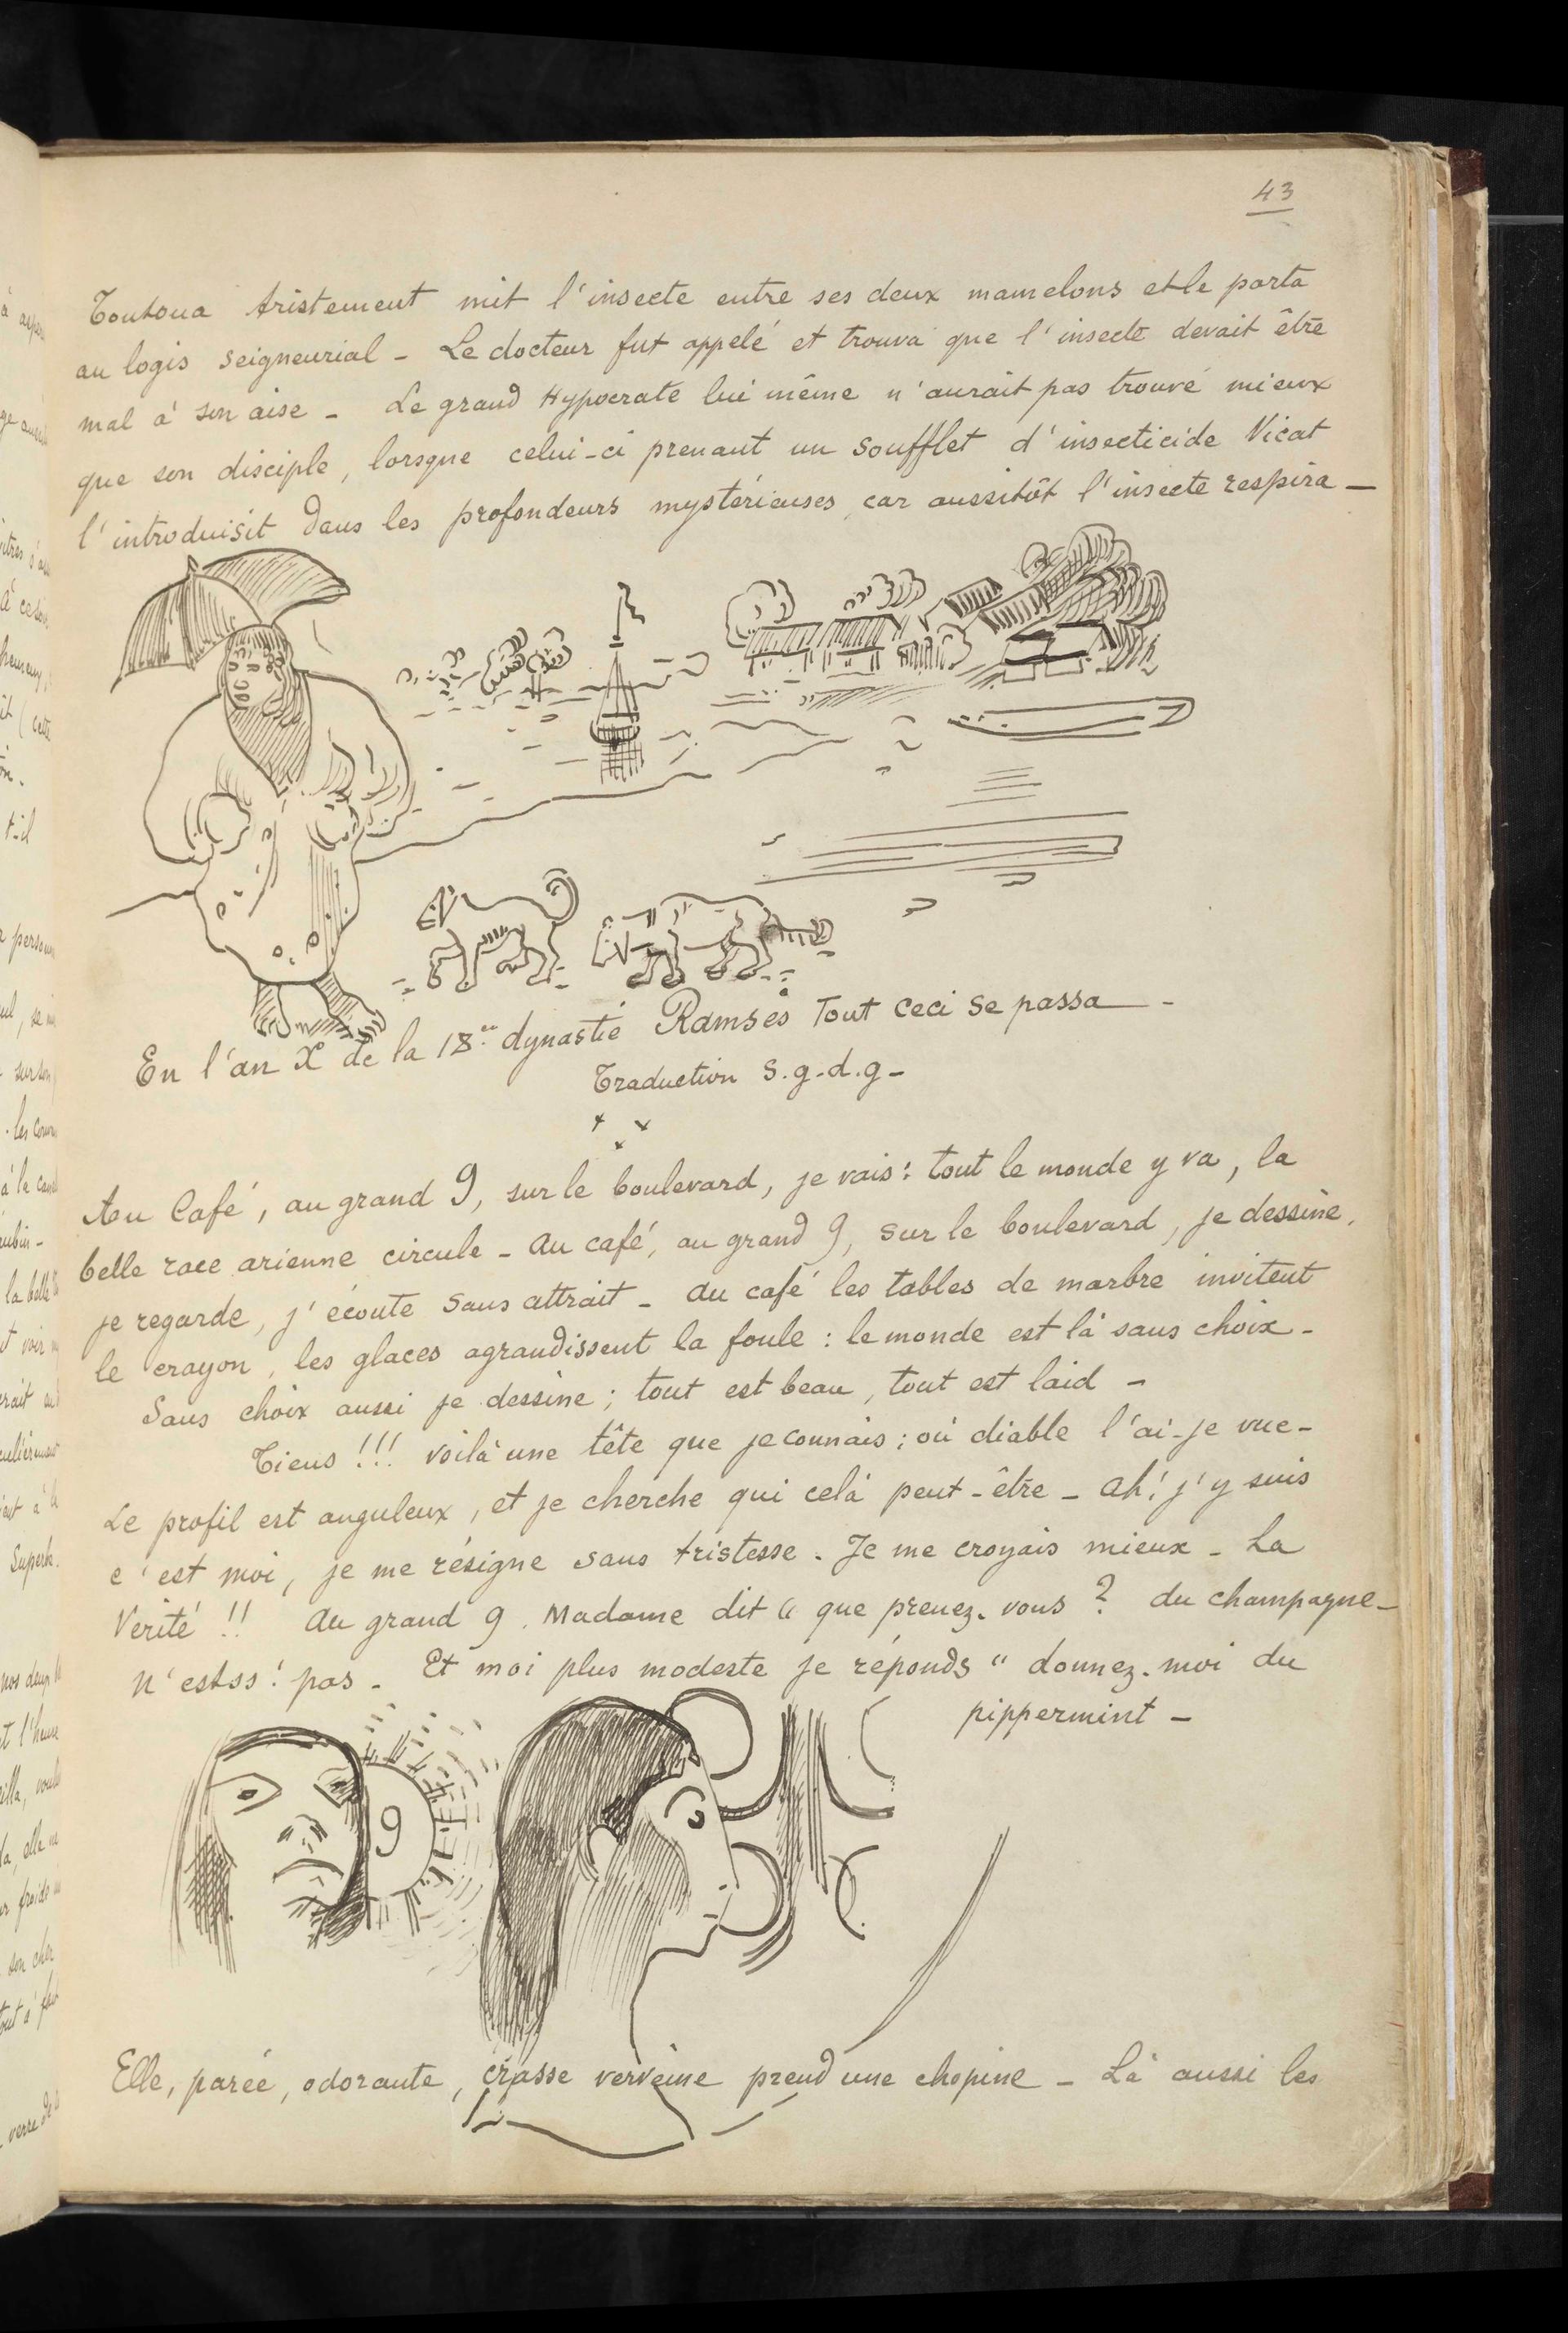 43
Toutoua tristement mit l'insecte entre ses deux mamelons et le porta
au logis seigneurial - Le docteur fut appelé et trouva que l'insecte devait être
mal à son aise - Le grand Hypocrate lui même n'aurait pas trouvé mieux
que son disciple, lorsque celui-ci prenant un soufflet d'insecticide Vicat
l'introduisit dans les profondeurs mystérieuses, car aussitôt l'insecte respira -
En l'an X de la 18.e dynastie Ramsès Tout ceci se passa -
Traduction s.g.d.g -
Au Café, au grand 9, sur le boulevard, je vais : tout le monde y va, la
belle race arienne circule - Au café, au grand 9, sur le boulevard, je dessine,
je regarde, j'écoute sans attrait - Au café les tables de marbre invitent
le crayon, les glaces agrandissent la foule : le monde est là sans choix -
Sans choix aussi je dessine ; tout est beau, tout est laid -
Tiens !!! voilà une tête que je connais ; où diable l'ai-je vue -
Le profil est anguleux, et je cherche qui celà peut-être - Ah ! j'y suis
c'est moi, je me résigne sans tristesse. Je me croyais mieux - La
Vérité !! Au grand 9. Madame dit " que prenez-vous ? du champagne -
n'estss ! pas - Et moi plus modeste je réponds " donnez-moi du
pippermint -
9
Elle, parée, odorante, crasse verveine prend une chopine - Là aussi les